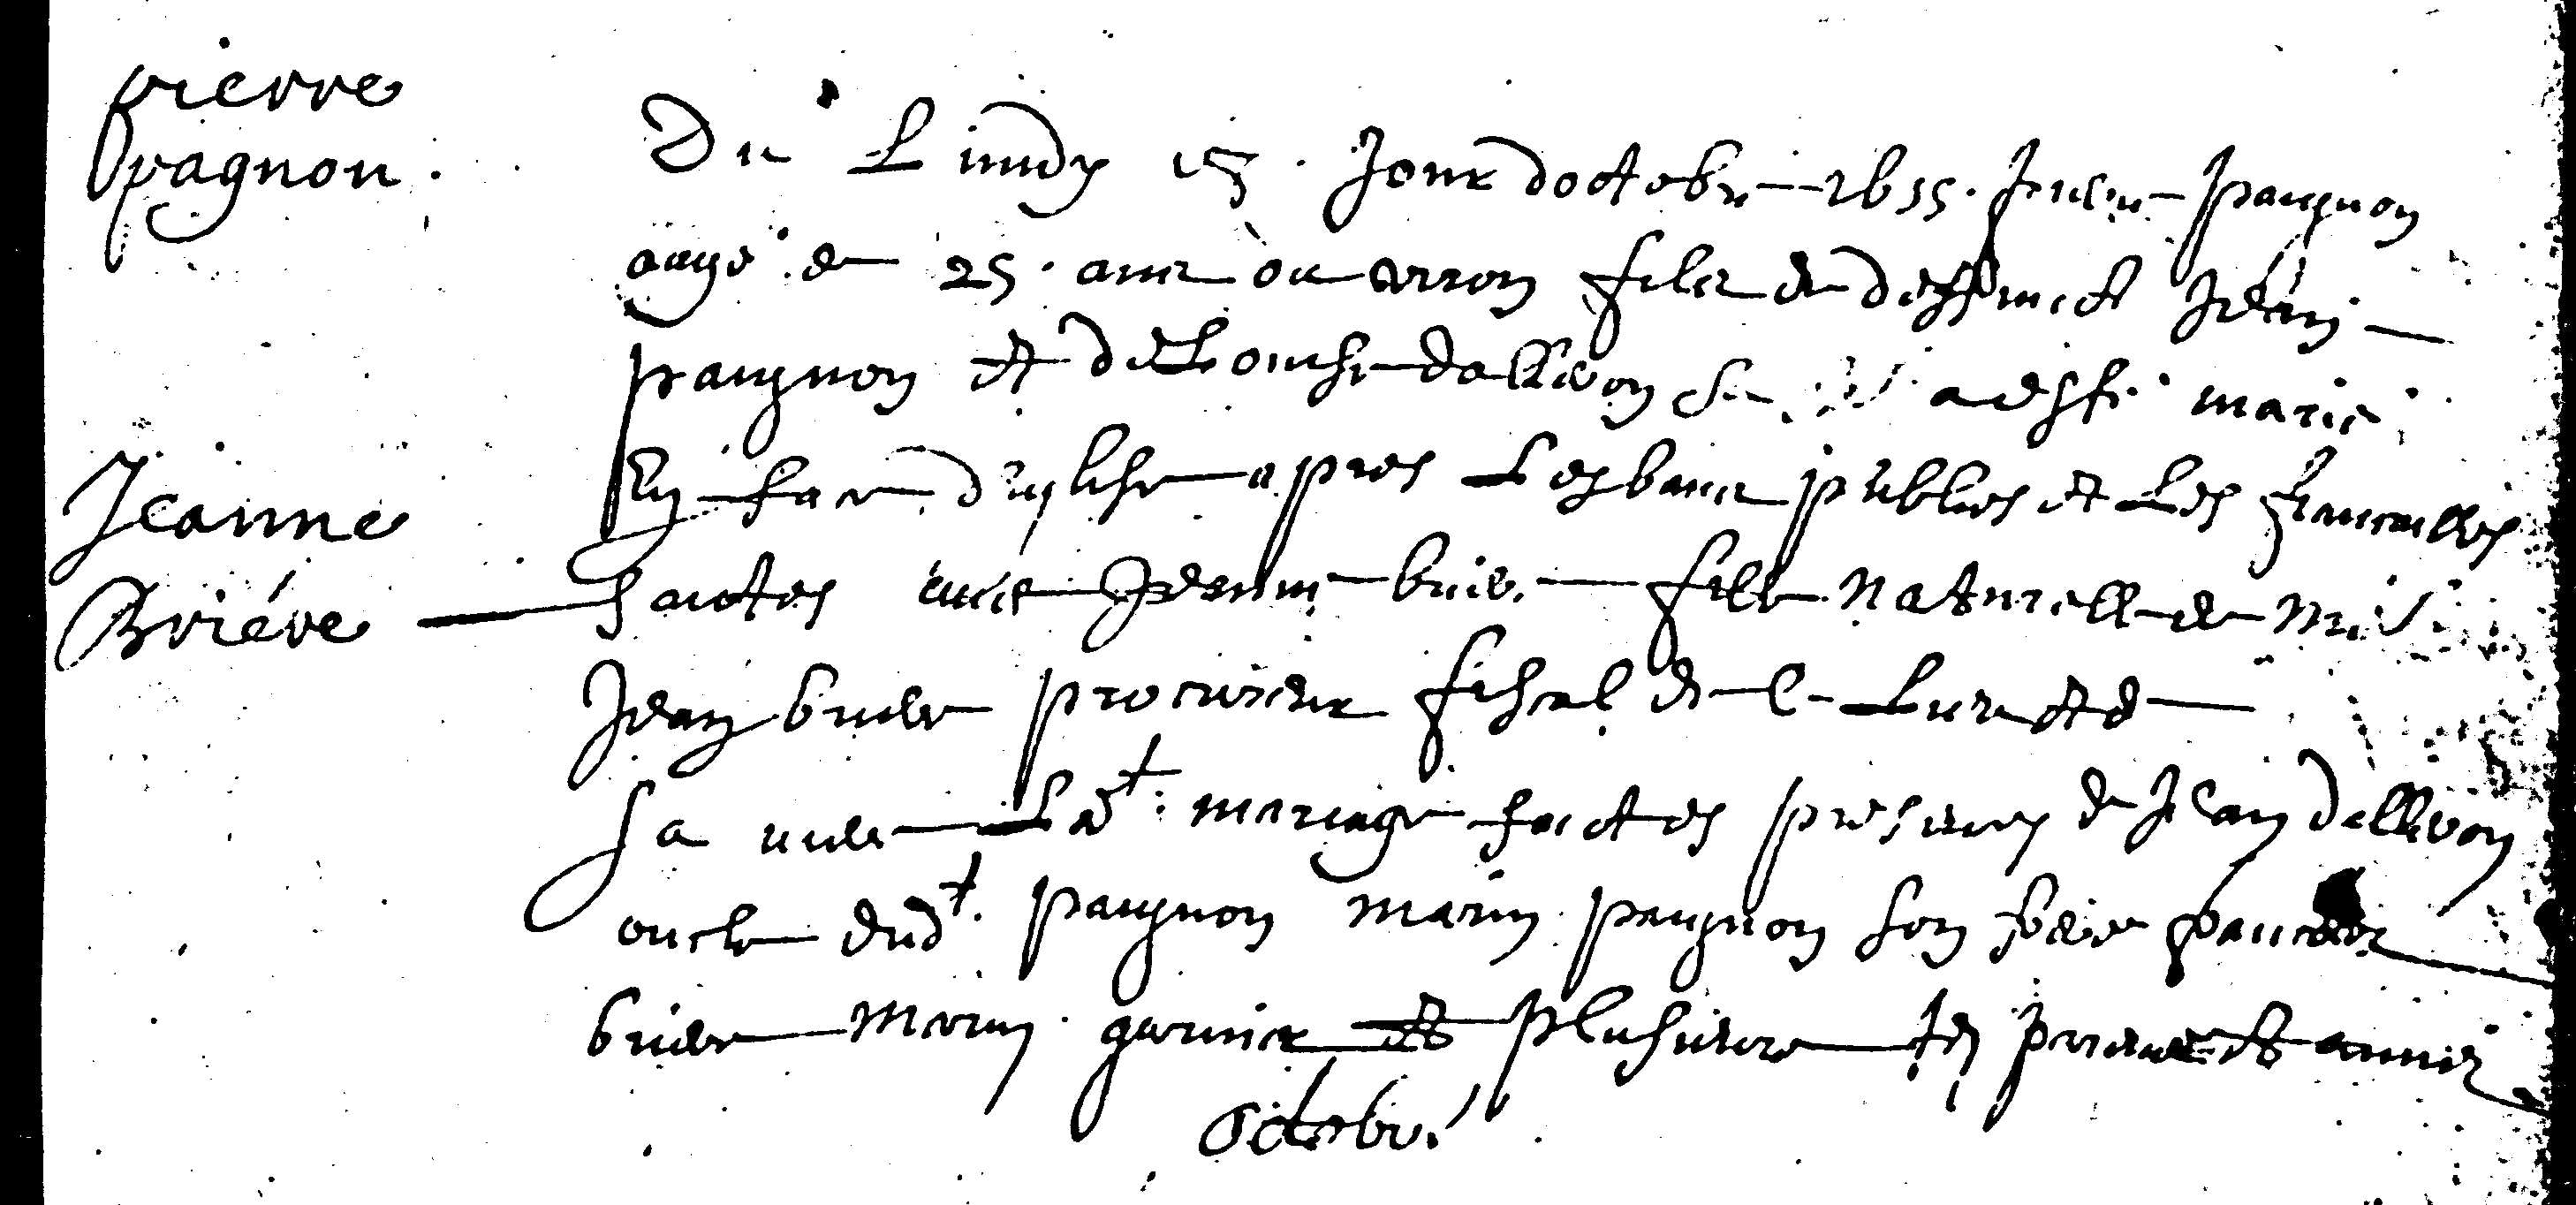 pierre
pagnon.
Du Lundy Jour doctobre 1655. pierre paugnon
aagé de 25. ans ou viron filz de deffunct Jean
paugnon et de Louise dallivon a esté marié
En face deglise apres Les bans publies et Les fiancailles
Jeanne
Briére
faictes avec Jeanne briere fille naturelle de
Jean briere procureur fiscal de et de
sa mere Led.t mariage faict es presences de Jean dallivon
oncle dud.t paugnon marin paugnon son frere
briere marin garnier et plusieurs parents et amis
Octobre